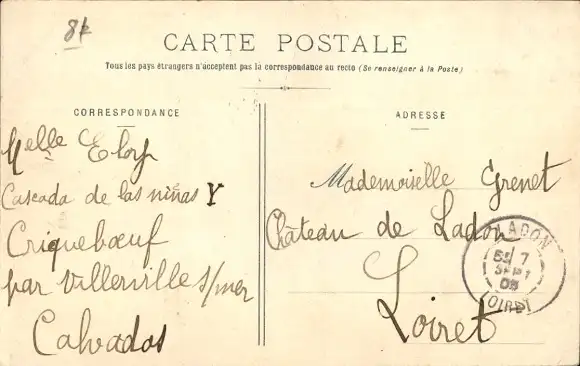 8k
CARTE POSTALE
Tous les pays étrangers n'acceptent pas la correspondance au recto (Se renseigner à la Poste)
CORRESPONDANCE
Melle Eloy
Cascada de las niñas Y
Criquebœuf
par Villerville s/mer
Calvados
ADRESSE
Mademoiselle Grenet
Château de Ladon
Loiret
LADON
7
SEPT
05
LOIRET